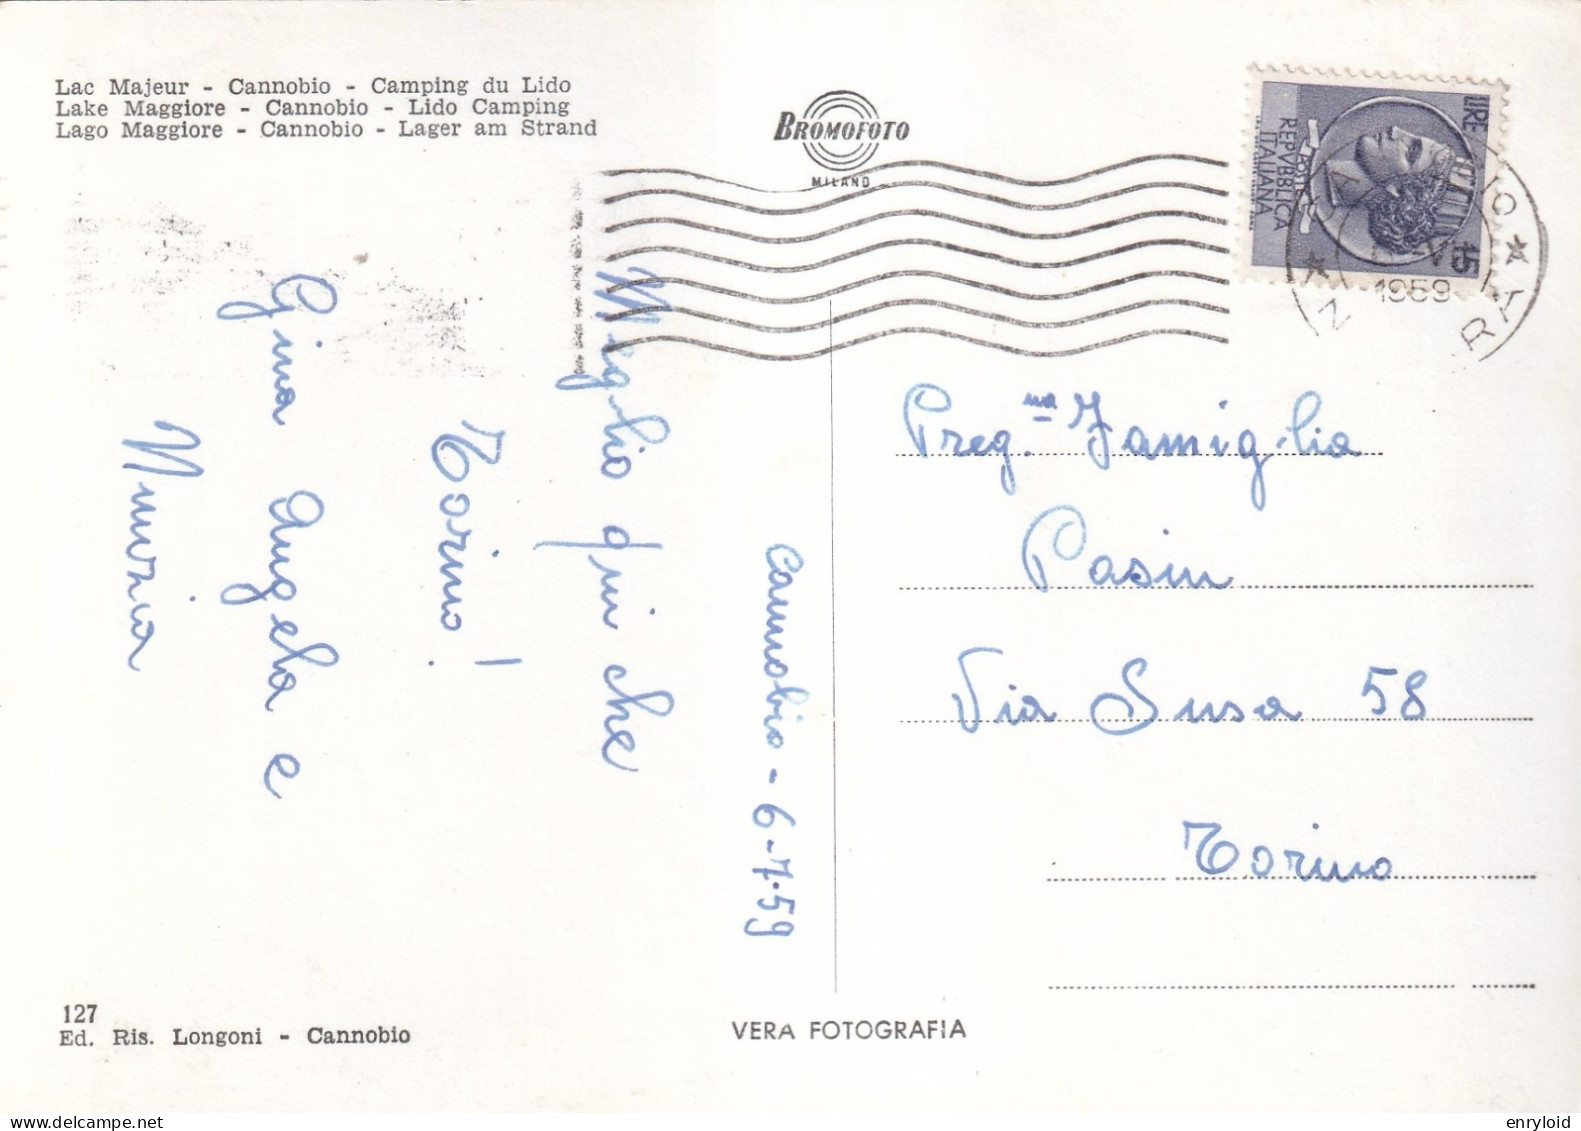 Lac Majeur - Cannobio - Camping du Lido
Lake Maggiore - Cannobio - Lido Camping
Lago Maggiore - Cannobio - Lager am Strand
BROMOFOTO
MILANO
LIRE 15
POSTE
REPVBBLICA
ITALIANA
1959
Cannobio - 6-7-59
Meglio qui che
Torino!
Gina Angela e
Nunzia
Preg.ma Famiglia
Pasin
Via Susa 58
Torino
127
Ed. Ris. Longoni - Cannobio
VERA FOTOGRAFIA
enryloid